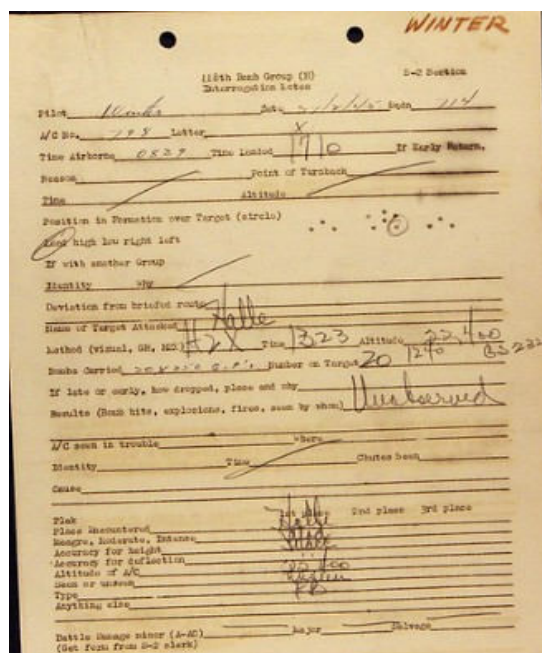 WINTER
448th Bomb Group (H) S-2 Section
Interrogation Notes
Pilot Winter Date Sqdn 714
A/C No. 798 Letter X
Time Airborne 0829 Time Landed 1710 If Early Return,
Reason Point of Turnback
Time Altitude
Position in Formation over Target (circle)
Lead high low right left
If with another Group
Identity Why
Deviation from briefed route
Name of Target Attacked Halle
Method (visual, GH, MH) H2X Time 1323 Altitude 22,400
Bombs Carried Number on Target 20
If late or early, how dropped, place and why
Results (Bomb hits, explosions, fires, seen by whom) Unobserved
A/C seen in trouble where
Identity Time Chutes Seen
Cause
Flak 1st place 2nd place 3rd place
Place Encountered Halle
Meagre, Moderate, Intense
Accuracy for height
Accuracy for deflection
Altitude of A/C 22,400
Seen or unseen
Type
Anything else
Battle Damage minor (A-AC) Major Salvage
(Get form from S-2 clerk)